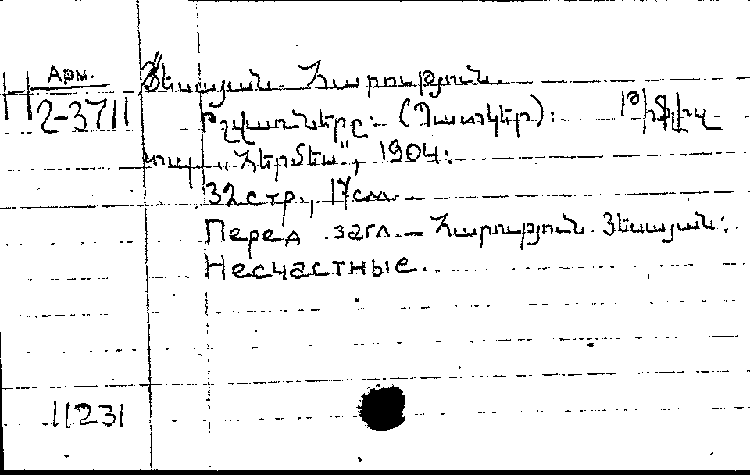 Арм.
Н 2-3711
Յեսայան Հարություն.
Թշվառները: (Պատկեր): Թիֆլիս
տպ. „Հերմես", 1904:
32 стр., 17 см.
Перед загл. — Հարություն Յեսայան:
Несчастные.
11231